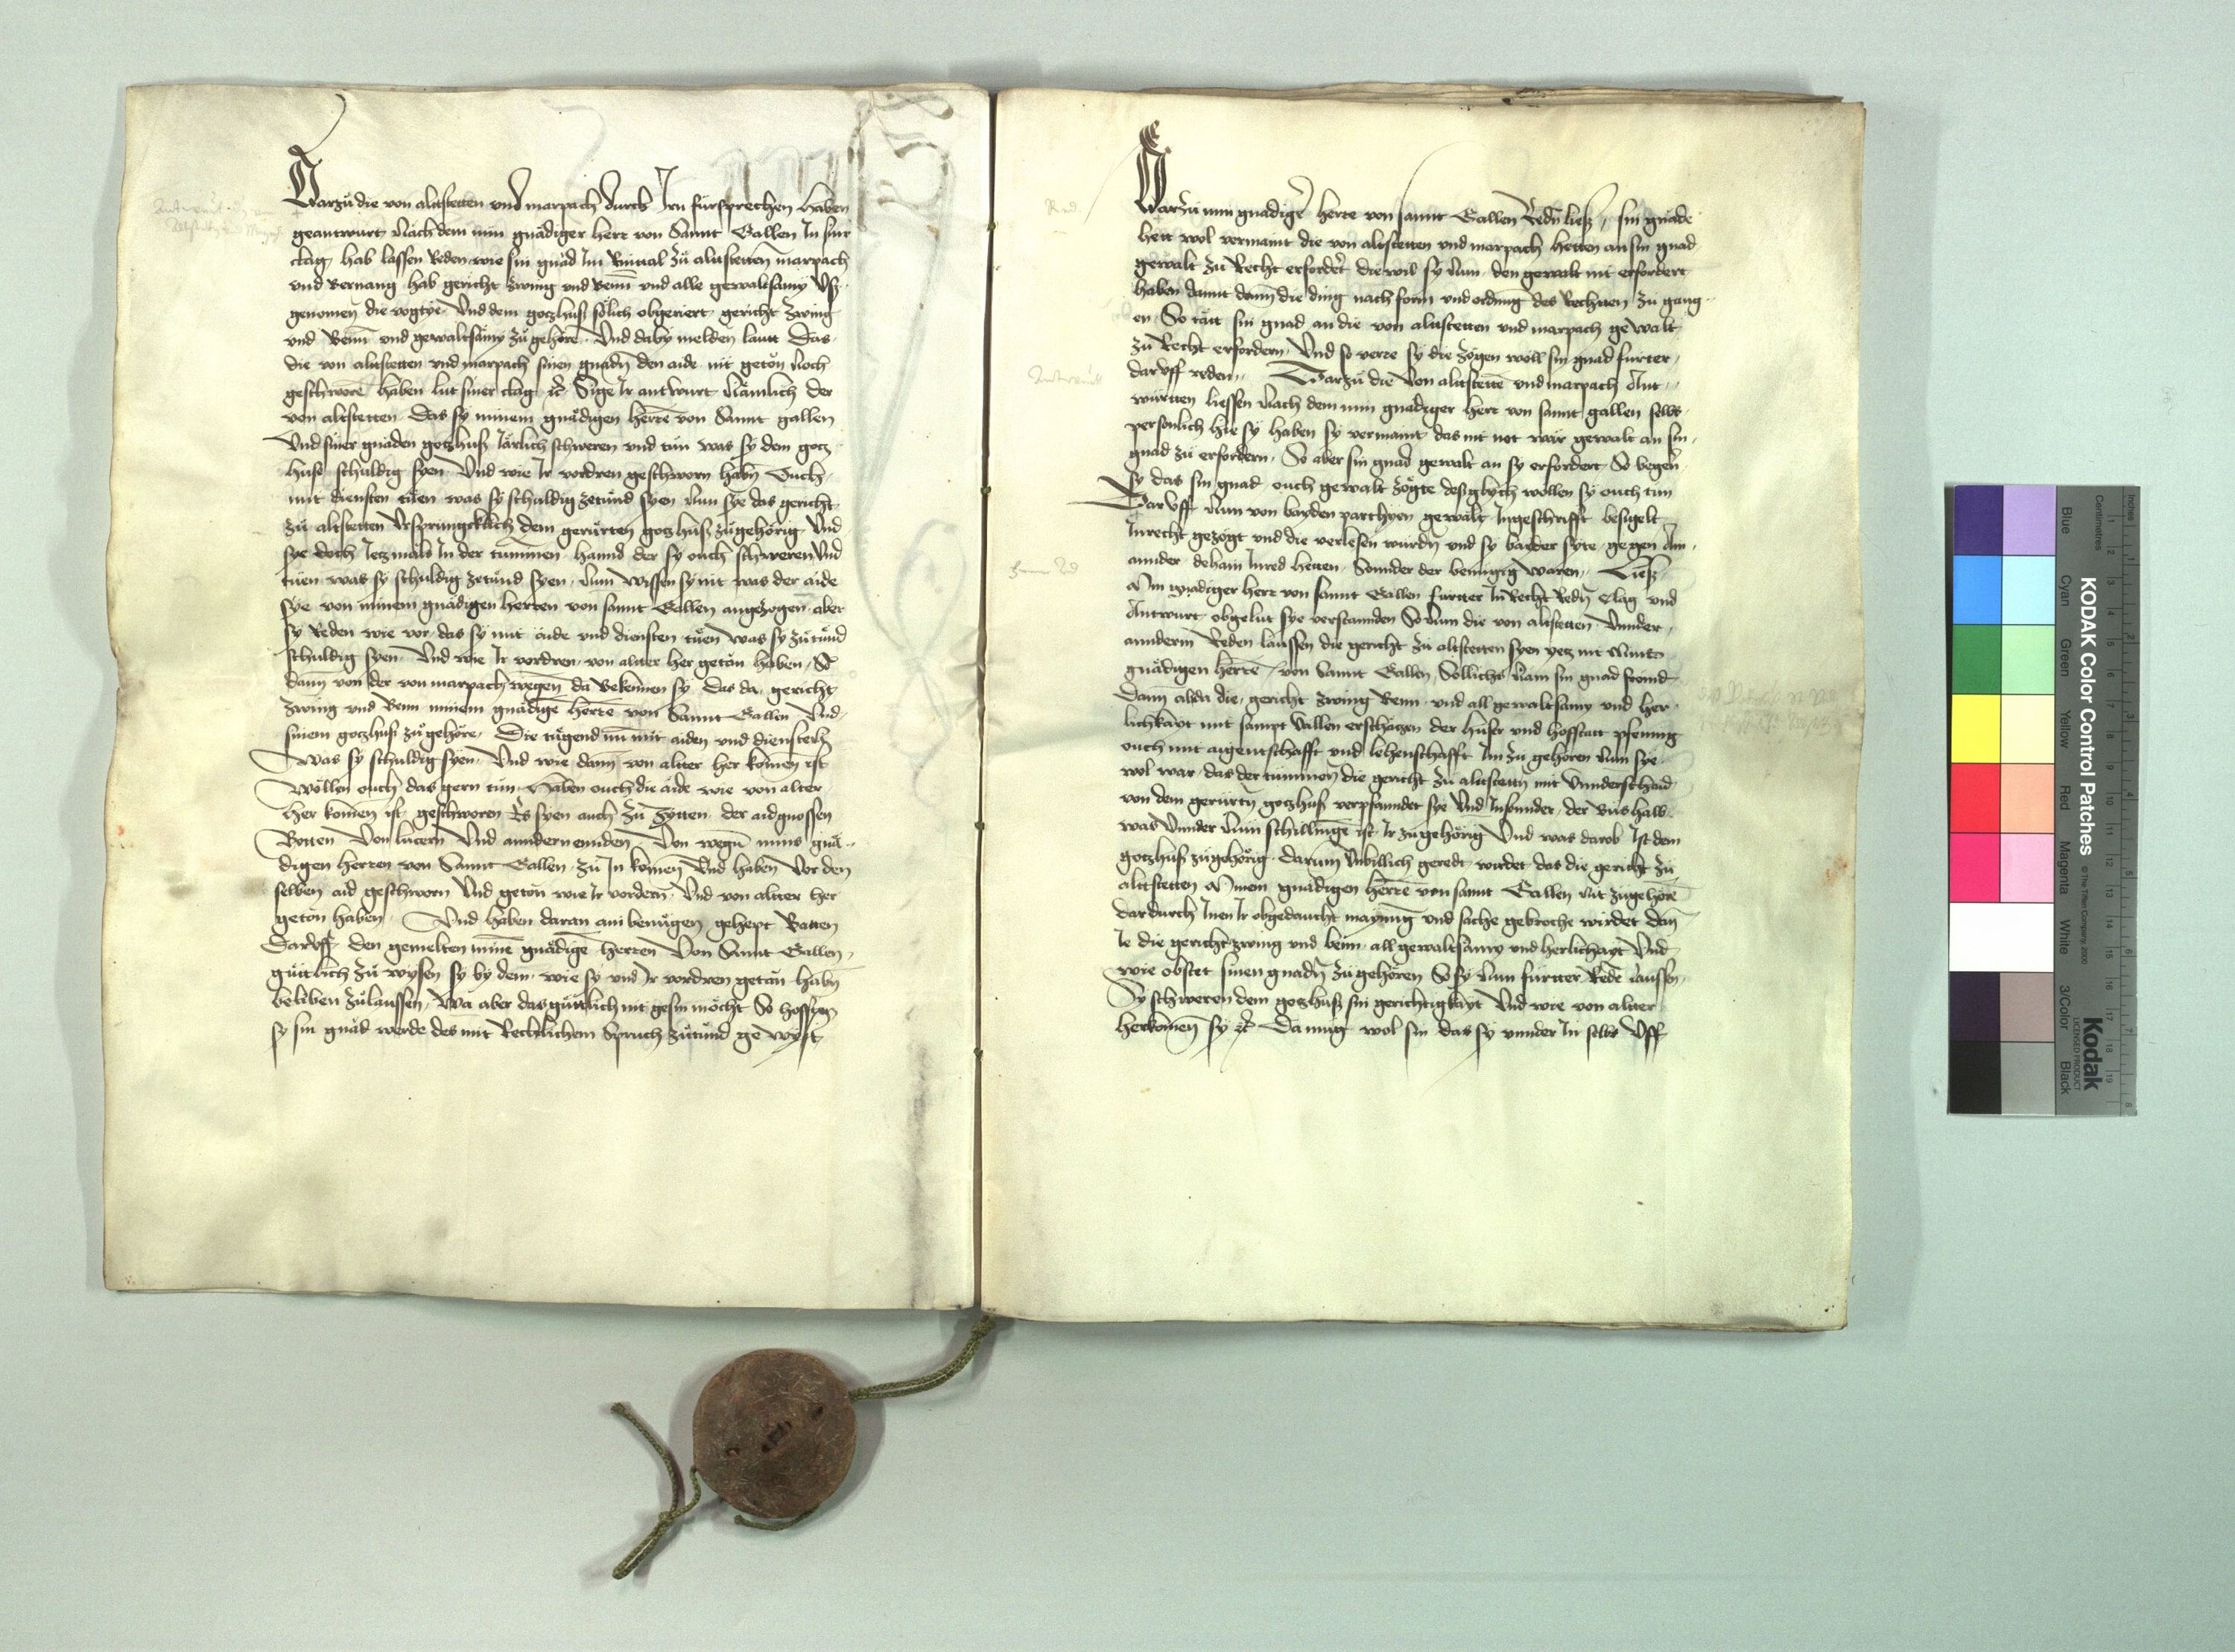 Darzů die von altstetten vnd marpach durch Irn fürsprechen haben
geantwurt Nach dem min gnådiger herr von Sannt Gallen In siner
clag hab lassen Reden wie sin gnad Im Rintal zů altstetten marpach
vnd Bernang hab gericht zwing vnd Benn vnd alle gewaltsamy Vß
genomen die vogtye Vnd dem gotzhuß sölich obgeriert gericht zwing
vnd Benn vnd gewaltsamy zůgehöre Vnd daby melden laut Das
die von altstetten vnd marpach sinen gnadn den aide nit geton Noch
geschwore haben lut siner clag ec Sige Ir antwurt Nåmlich der
von altstetten Das sy minem gnådigen herre von Sannt gallen
Vnd siner gnaden gotzhuß Jårlich schweren vnd tün was sy dem gotz
huse schuldig syen Vnd wie Ir vordren geschworn habn Ouch
mit diensten tüen was sy schuldig zetünd syen Nun sye das gericht
zů altstetten Vrsprungklich dem gerürten gotzhuß zůgehörig Vnd
sye doch Jetzmals In der tummen hannd der sy ouch schweren Vnd
tüen was sy schuldig zetünd syen Nun wissen sy nit was der aide
sye von minem gnådigen herren von sannt Gallen angezogen aber
sy Reden wie vor das sy mit aide vnd diensten tüen was sy zůtünd
schuldig syen Vnd wie Ir vordren von alter her getan haben So
dann von der von marpach wegen da Bekennen sy das da gericht
zwing vnd Benn minem gnådige herre von Sannt Gallen Vnd
sinem gotzhuß zůgehöre Die tügend im mit aiden vnd diensten
Was sy schuldig syen Vnd wie dann von alter her komen ist
Wöllen ouch das gern tün Haben ouch die aide wie von alter
her komen ist geschworen Es syen auch zů Zytten der aidgnossen
Botten Von lucern Vnd anndern ennden Von wegn mins gnå
digen herren von Sannt Gallen zů In komen Vnd haben Vor den
selben aid geschworn Vnd geton wie Ir vordern Vnd von alter her
geton haben Vnd haben daran ain benügen gehept Batten
Darvff den gemelten mine gnådige herren Von Sannt Gallen
güttlich zů wysen sy by dem wie sy vnd Ir vordren getan habn
beliben zůlaussen Wa aber das güttlich nit gesin möcht So hofften
sy sin gnad werde des mit Rechtlichem Spruch zůtünd gewyst
Darzů min gnådiger herre von sannt Gallen Redn ließ sin gnade
hett wol vermaint die von altstetten vnd marpach hetten an sin gnad
gewalt zů Recht erfordert diewil sy Nun den gewalt nit erfordert
haben damit dann die ding nach form vnd ordnung des Rechtten zů gang
en So tätt sin gnad an die von altstetten vnd marpach gewalt
zů Recht erfordern Vnd so verre sy die zögen wöll sin gnad furter
darvff reden Darzů die Von altstette vnd marpach Ant
wurtten liessen Nach dem min gnådiger herr von sannt gallen selbs
persönlich hie sy haben sy vermaint das nit not wår gewalt an sin
gnad zů erfordern So aber sin gnad gewalt an sy erfordert So begern
sy das sin gnad ouch gewalt zögte desglych wöllen sy ouch tün
Darvff Nun von bayden parthyen gewalt Ingeschrifft besigelt
Inrecht gezögt vnd die verlesen wurdn vnd sy baider syte gegen Ain
annder dehain Inred hetten Sonnder der benügig waren Ließ
Min gnådiger herr von sannt Gallen furtter In Recht Redn Clag vnd
Antwurt obgelut sye verstannden So Nun die von altstetten Vnnder
annderm Reden laussen die gericht zů altstetten syen yetz nit Mins
gnådigen herre von Sannt Gallen Söllichs Näm sin gnad frömd
Dann alda die gericht zwing Benn vnd all gewaltsamy vnd her
lichkayt mit sampt Vallen erschåtzen der hüser vnd hoffstatt pfennig
ouch mit aigentschafft vnd lehenschafft Im zů gehören Nun sye
wol war das der tummen die gericht zů altstettn mit Vnnderschaid
von dem gerürtn gotzhuß verpfenndet sye Vnd Insonnder der Büs halb
was Vnnder Nün schillinge ist Ir zůgehörig Vnd was darob Ist dem
gotzhuß zůgehörig Darum Vnbillich geredt wirdet das die gericht zů
altstetten Minem gnådigen herre von sannt Gallen Nit zůgehöre
Dardurch Inen Ir obgedaucht maynung vnd sache gebroche wirdet dann
Je die gericht zwing vnd benn all gewaltsamy vnd herlichayt Vnd
wie obstet sinen gnadn zůgehören So sy Nun furtter Rede laussen
Sy schweren dem gotzhuß sin gerichtigkayt Vnd wie von alter
herkomen sy ec Da mug wol sin das sy vnnder In selbs Vff